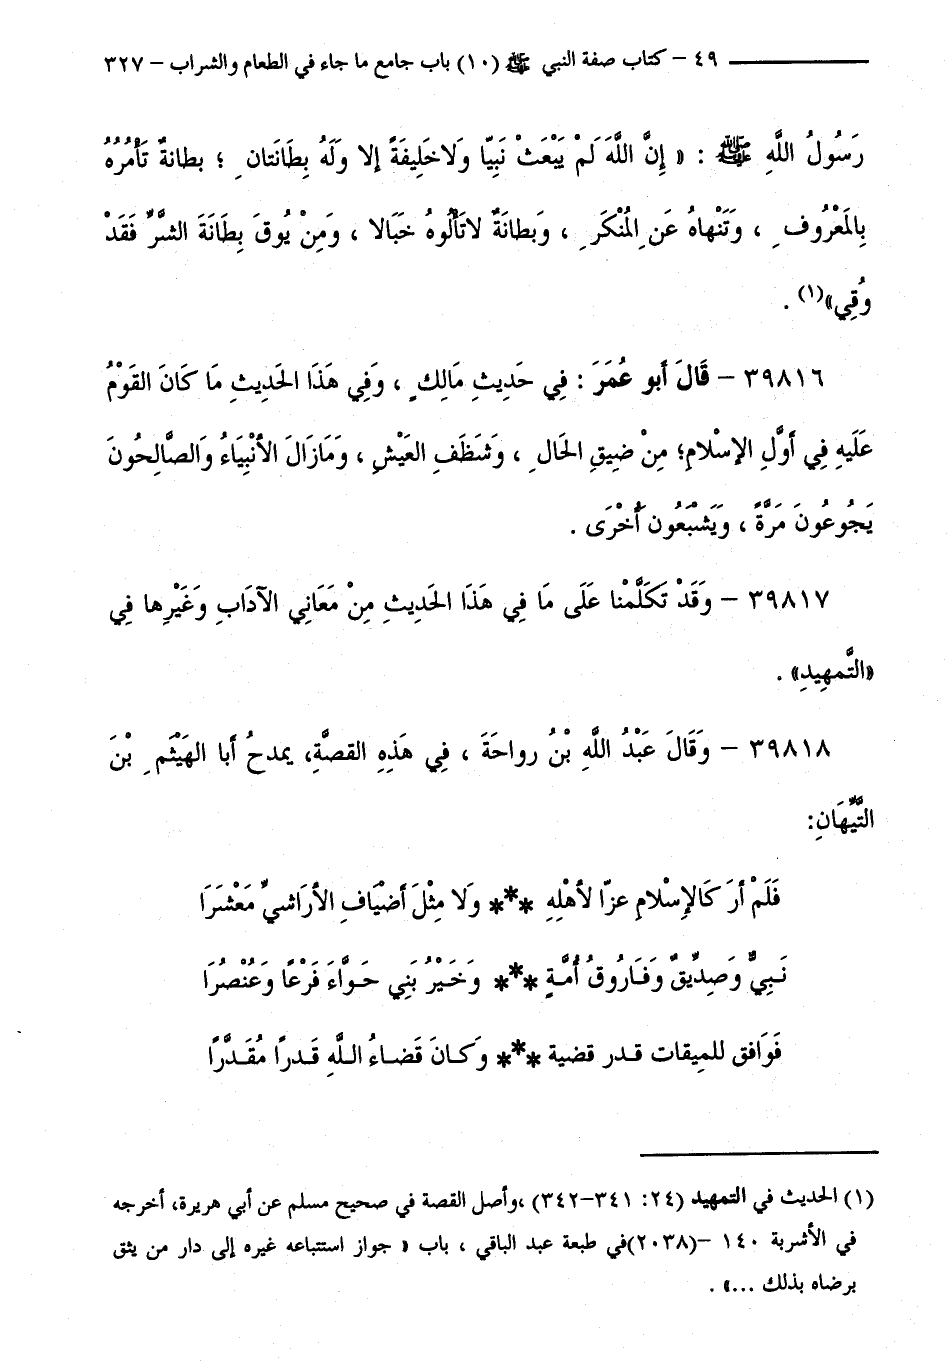 ٤٩ – كتاب صفة النبي ﷺ (١٠) باب جامع ما جاء في الطعام والشراب – ٣٢٧
رَسُولُ اللَّهِ ﷺ : « إِنَّ اللَّهَ لَمْ يَبْعَثْ نَبِيّا وَلاخَلِيفَةً إلا وَلَهُ بِطَانَتانِ ؛ بطانةٌ تَأْمُرُهُ
بِالمَعْرُوفِ ، وَتَنْهاهُ عَنِ المُنْكَرِ ، وَبطانَةٌ لاتَأْلُوهُ خَبَالا ، وَمِنْ يُوقَ بِطَانَةَ الشَّرِّ فَقَدْ
وُقِي»(١) .
٣٩٨١٦ – قَالَ أَبو عُمَرَ : فِي حَدِيثِ مَالِكٍ ، وَفِي هَذَا الحَدِيثِ مَا كَانَ القَوْمُ
عَلَيهِ فِي أَوَّلِ الإسْلامِ؛ مِنْ ضيقِ الحَالِ ، وَشَظَفِ العَيْشِ ، وَمَازَالَ الأَنْبِيَاءُ وَالصَّالِحُونَ
يَجُوعُونَ مَرَّةً ، وَيَشْبَعُون أُخْرَى .
٣٩٨١٧ – وَقَدْ تَكَلَّمْنا عَلَى مَا فِي هَذَا الحَدِيثِ مِنْ مَعَانِي الآدَابِ وَغَيْرِها فِي
«التَّمهِيدِ» .
٣٩٨١٨ – وَقَالَ عَبْدُ اللَّهِ بْنُ رواحَةَ ، فِي هَذِهِ القصَّةِ، يمدحُ أَبا الهَيْثَمِ بْنَ
التَّيِّهَانِ:
فَلَمْ أَرَ كَالإِسْلامِ عزّا لأهْلِهِ *** وَلا مِثْلَ أَضْيَافِ الأَرَاشيِّ مَعْشَرَا
نَبِيٌّ وَصِدِّيقٌ وَفَارُوقُ أُمَّةٍ *** وَخَيْرُ بَنِي حَوَّاءَ فَرْعًا وَعُنْصُرَا
فَوَافق للمِيقات قدر قضية *** وَكانَ قَضاءُ اللَّهِ قَدرًا مُقَدَّرًا
(١) الحديث في التمهيد (٢٤: ٣٤١–٣٤٢) ،وأصل القصة في صحيح مسلم عن أبي هريرة، أخرجه
في الأشربة ١٤٠ –(٢٠٣٨)في طبعة عبد الباقي ، باب « جواز استتباعه غيره إلى دار من يثق
برضاه بذلك ...» .